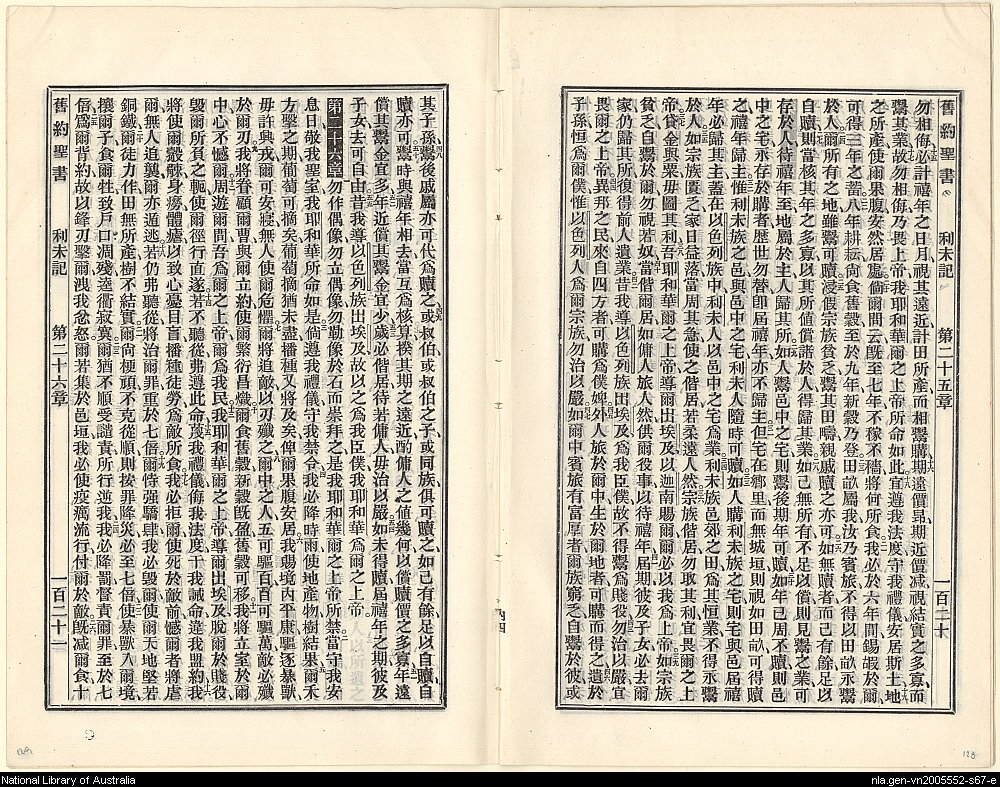 舊約聖書 利未記 第二十五章 一百二十
勿相侮必計禧年之日月視其遠近計田所產而相鬻購期遠價昂期近價减視結實之多寡而
鬻其業故勿相侮乃畏上帝我耶和華爾之上帝所命如此宜遵我法度守我禮儀安居斯土地
之所產使爾果腹安然居處倘爾問云旣至七年不稼不穡將何所食我必於六年間錫嘏於爾
可得三年之蓄八年耕耘尙食舊穀至於九年新穀乃登田畝屬我汝乃賓旅不得以田畝永鬻
於人爾所有之地雖鬻可贖浸假宗族貧乏鬻其田疇親戚贖之亦可如無贖者而己有餘足以
自贖則當核其年之多寡以其所値償諸於人得歸其業如己無所有不足以償則見鬻之業可
存於人待禧年至地屬於主人歸其所如人鬻邑中之宅則鬻後期年可贖如年已周不贖則邑
中之宅永存於購者歷世勿替卽屆禧年亦不歸主但宅在鄕里而無城垣則視如田畝可得贖
之禧年歸主惟利未族之邑與邑中之宅利未人隨時可贖如人購利未族之宅則宅與邑屆禧
年必歸其主蓋在以色列族中利未人以邑中之宅爲業利未族邑郊之田爲其恒業不得永鬻
於人如宗族匱乏家日益落當周其急使之偕居若柔遠人然宗族偕居勿取其利宜畏爾之上
帝貸金與粟毋圖其利吾耶和華爾之上帝導爾出埃及以迦南賜爾爾必以我爲上帝如宗族
貧乏自鬻於爾勿視若奴當偕爾居如傭人旅人然供爾役事以待禧年屆期彼及子女必去爾
家仍歸其所復得前人遺業昔我導以色列族出埃及爲我臣僕故不得鬻爲賤役勿治以嚴宜
畏爾之上帝異邦之民來自四方者可購爲僕婢外人旅於爾中生於爾地者可購而得之遺於
子孫恒爲爾僕惟以色列人爲爾宗族勿治以嚴如爾中賓旅有富厚者爾族窮乏自鬻於彼或
其子孫鬻後戚屬亦可代爲贖之或叔伯或叔伯之子或同族俱可贖之如己有餘足以自贖自
贖亦可鬻時與禧年相去當互爲核算揆其期之遠近酌傭人之値幾何以償贖價之多寡年遠
償其鬻金宜多年近償其鬻金宜少歲必偕居待若傭人毋治以嚴如未得贖屆禧年之期彼及
子女去可自由昔我導以色列族出埃及故以之爲我臣僕我耶和華爾之上帝
第二十六章 勿作偶像勿立偶像勿勒像於石而崇拜之是我耶和華爾之上帝所禁當守我安
息日敬我聖室我耶和華所命如是倘遵我禮儀守我禁令我必降時雨使地產物樹結果爾禾
方擊之期葡萄可摘矣葡萄摘猶未盡播種又將及矣俾爾果腹安居我錫境內平康驅逐暴獸
毋許興戎爾可安寢無人使爾危懼爾將追敵以刃殲之爾中之人五可驅百百可驅萬敵必殲
於爾刃我將眷顧爾曹與爾立約使爾繁衍昌熾爾食舊穀新穀旣盈舊穀可移我將立室於爾
中心不憾爾周遊爾間吾爲爾之上帝爾爲我民我耶和華爾之上帝導爾出埃及脫爾於賤役
毀爾所負之軛使爾徑行直遂若不聽從弗遵此命蔑我禮儀侮我法度干我誡命違我盟約我
將使爾觳觫身瘍體瘧以致心憂目盲播種徒勞爲敵所食我必拒爾使死於敵前憾爾者將虐
爾無人追襲爾亦遁逃若仍弗聽從將治爾罪重於七倍爾恃強驕肆我必毀爾使爾天地堅若
銅鐵爾徒力作田無所產樹不結實爾尙梗頑不克從順則按罪降災必至七倍使暴獸入爾境
攘爾子食爾牲致戶口凋殘逵衢寂寞爾猶不順受譴責所行逆我我必降罰督責爾罪至於七
倍爲爾背約故以鋒刃擊爾洩我忿怒爾若集於邑垣我必使疫癘流行付爾於敵旣减爾食十
舊約聖書 利未記 第二十六章 一百二十一
National Library of Australia
nla.gen-vn2005552-s67-e